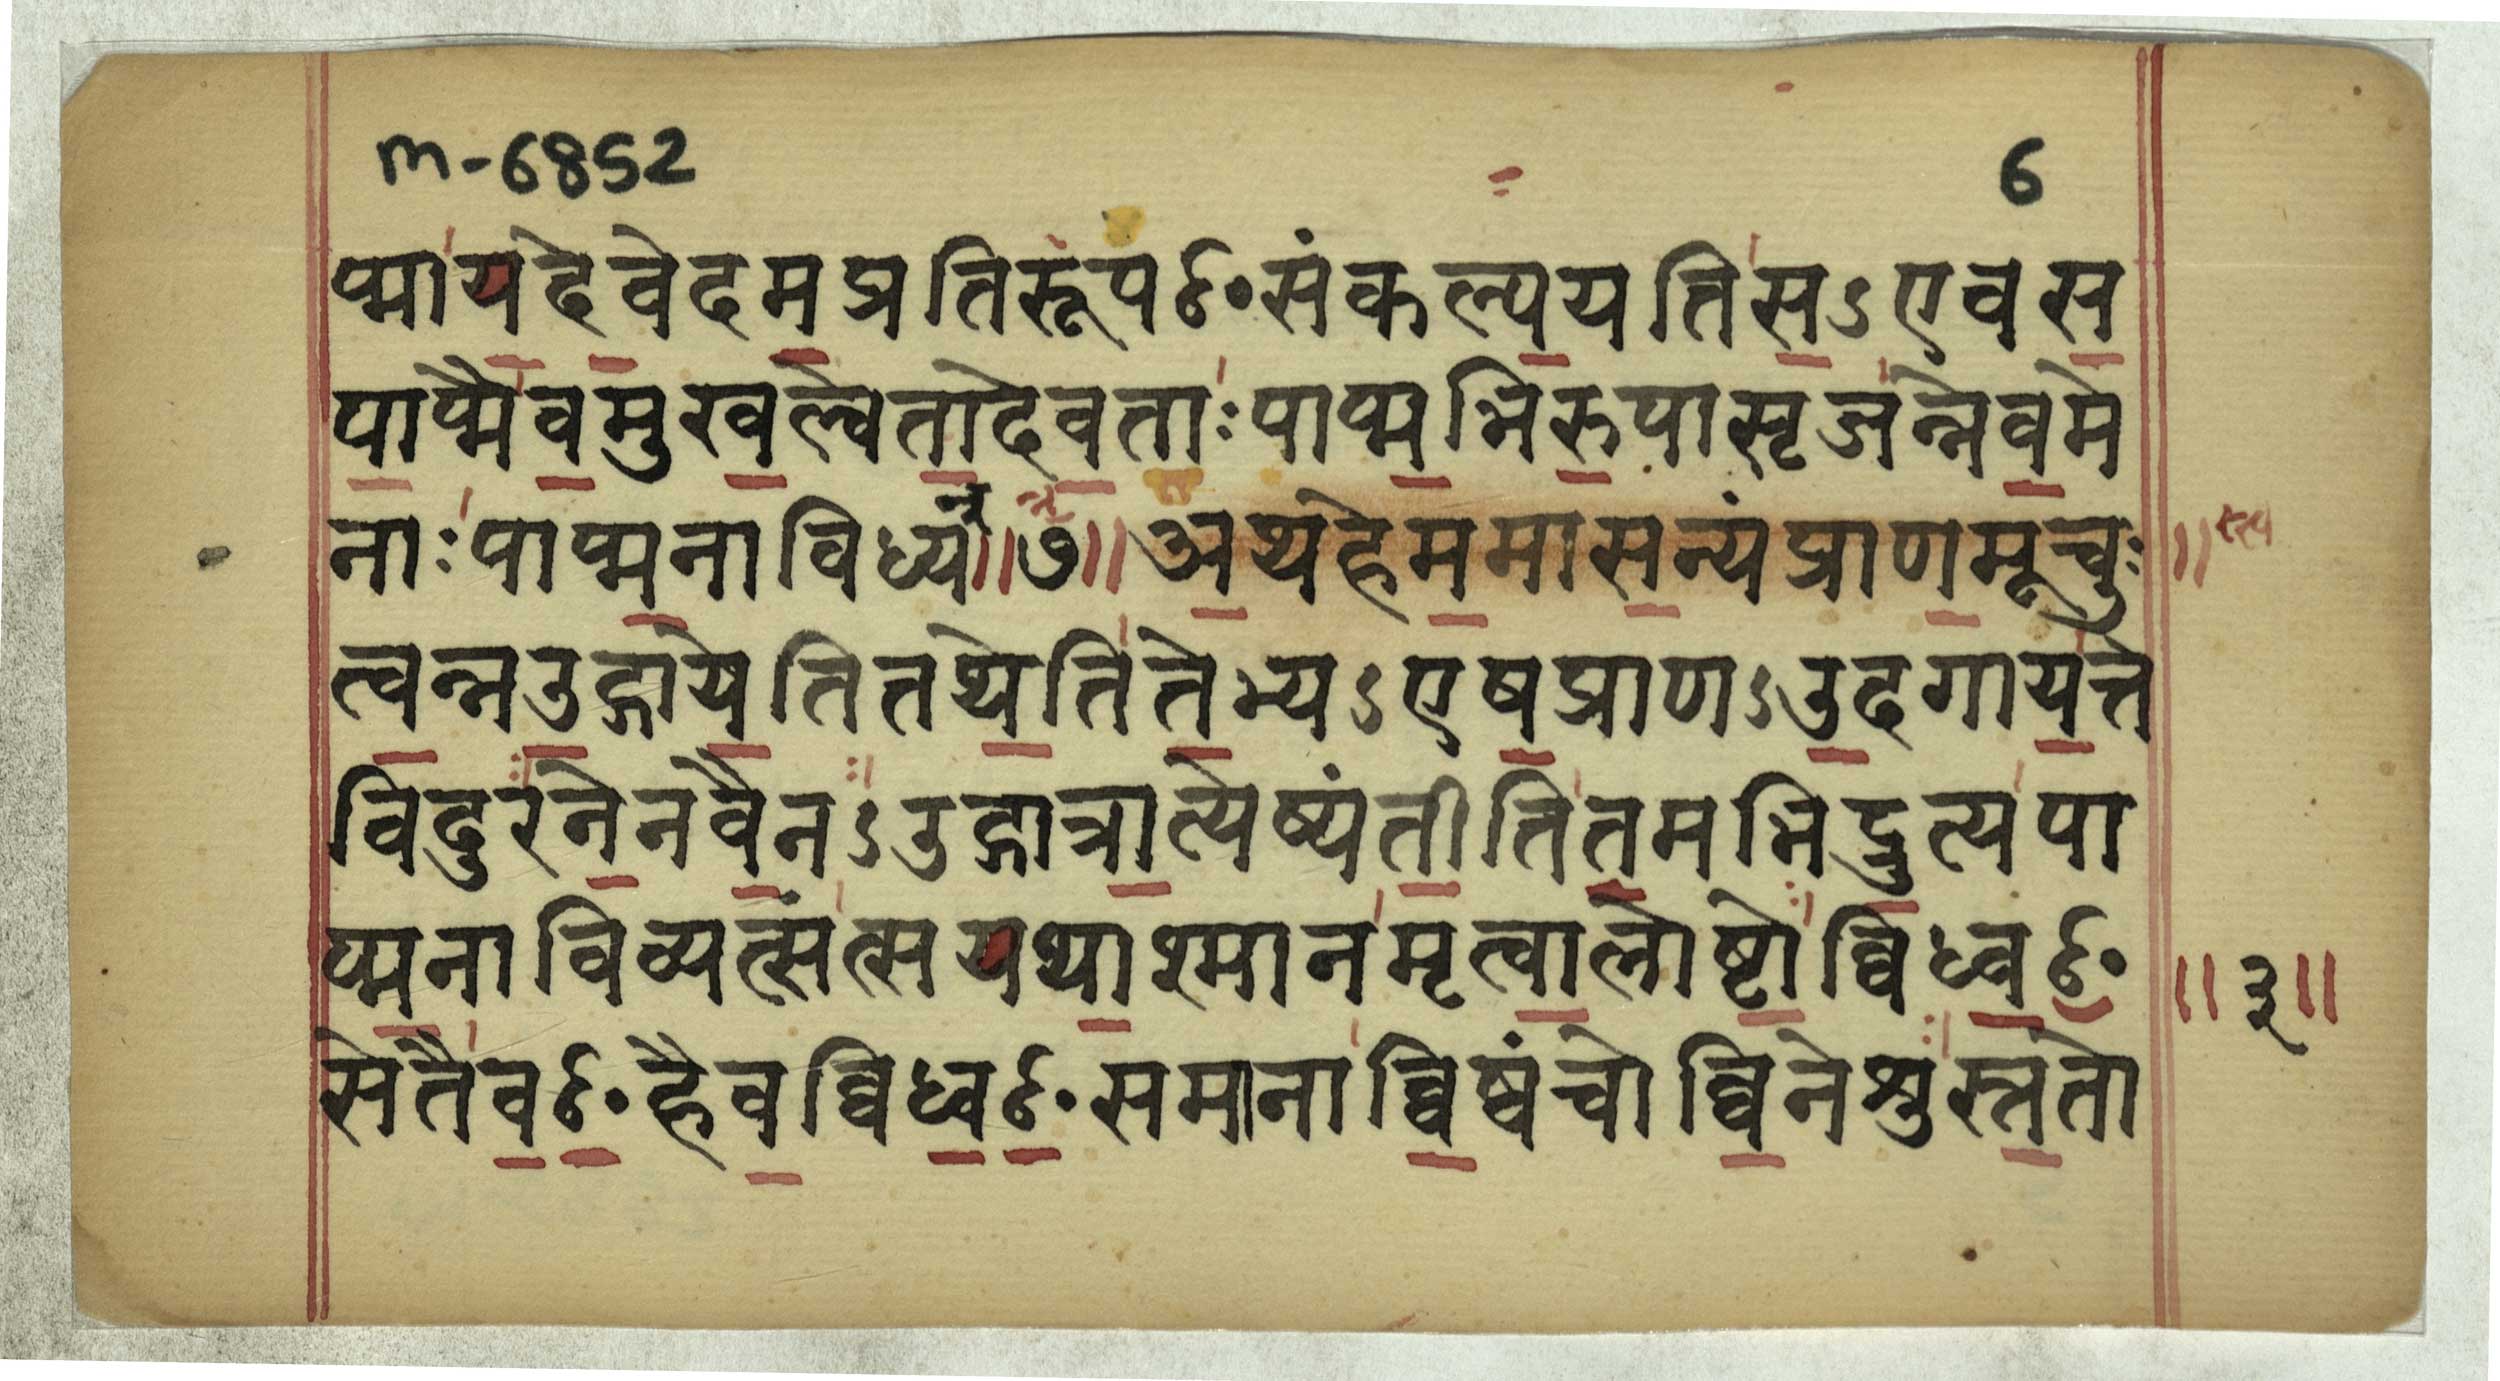 m-6852 6
प्मायदेवेदमप्रतिरूपꣳसंकल्पयतिसऽएवस
पाप्मैवमुखल्वेतादेवताःपाप्मभिरुपासृजन्नेवमे
नाःपाप्मनाविध्यन्॥७॥अथहेममासन्यंप्राणमूचुः
त्वन्नउद्गायेतितथेतितेभ्यऽएषप्राणऽउदगायत्ते
विदुरनेनवैनऽउद्गात्रात्येष्यंतीतितमभिद्रुत्यपा
प्मनाविव्यत्संत्सयथाश्मानमृत्वालोष्टोव्विध्वꣳ
॥३॥
सेतैवꣳहैवव्विध्वꣳसमानाव्विष्वंचोव्विनेशुस्ततो